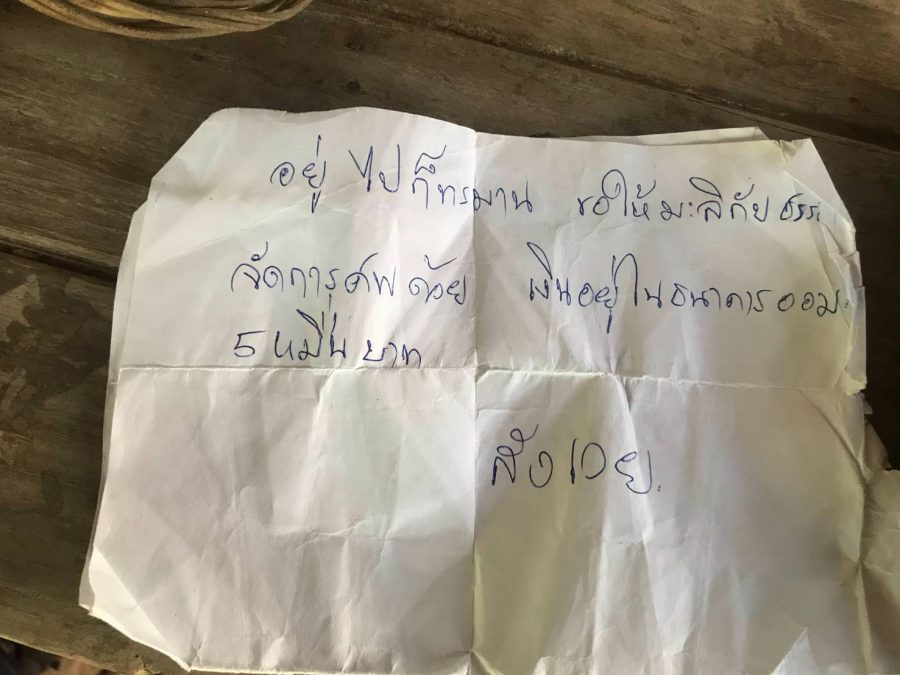 อยู่ ไป ก็ทรมาน ขอให้มะลิกัยธรร
จัดการศพ ด้วย เงินอยู่ในธนาคารออม
5 หมื่น บาท
สังเวย.